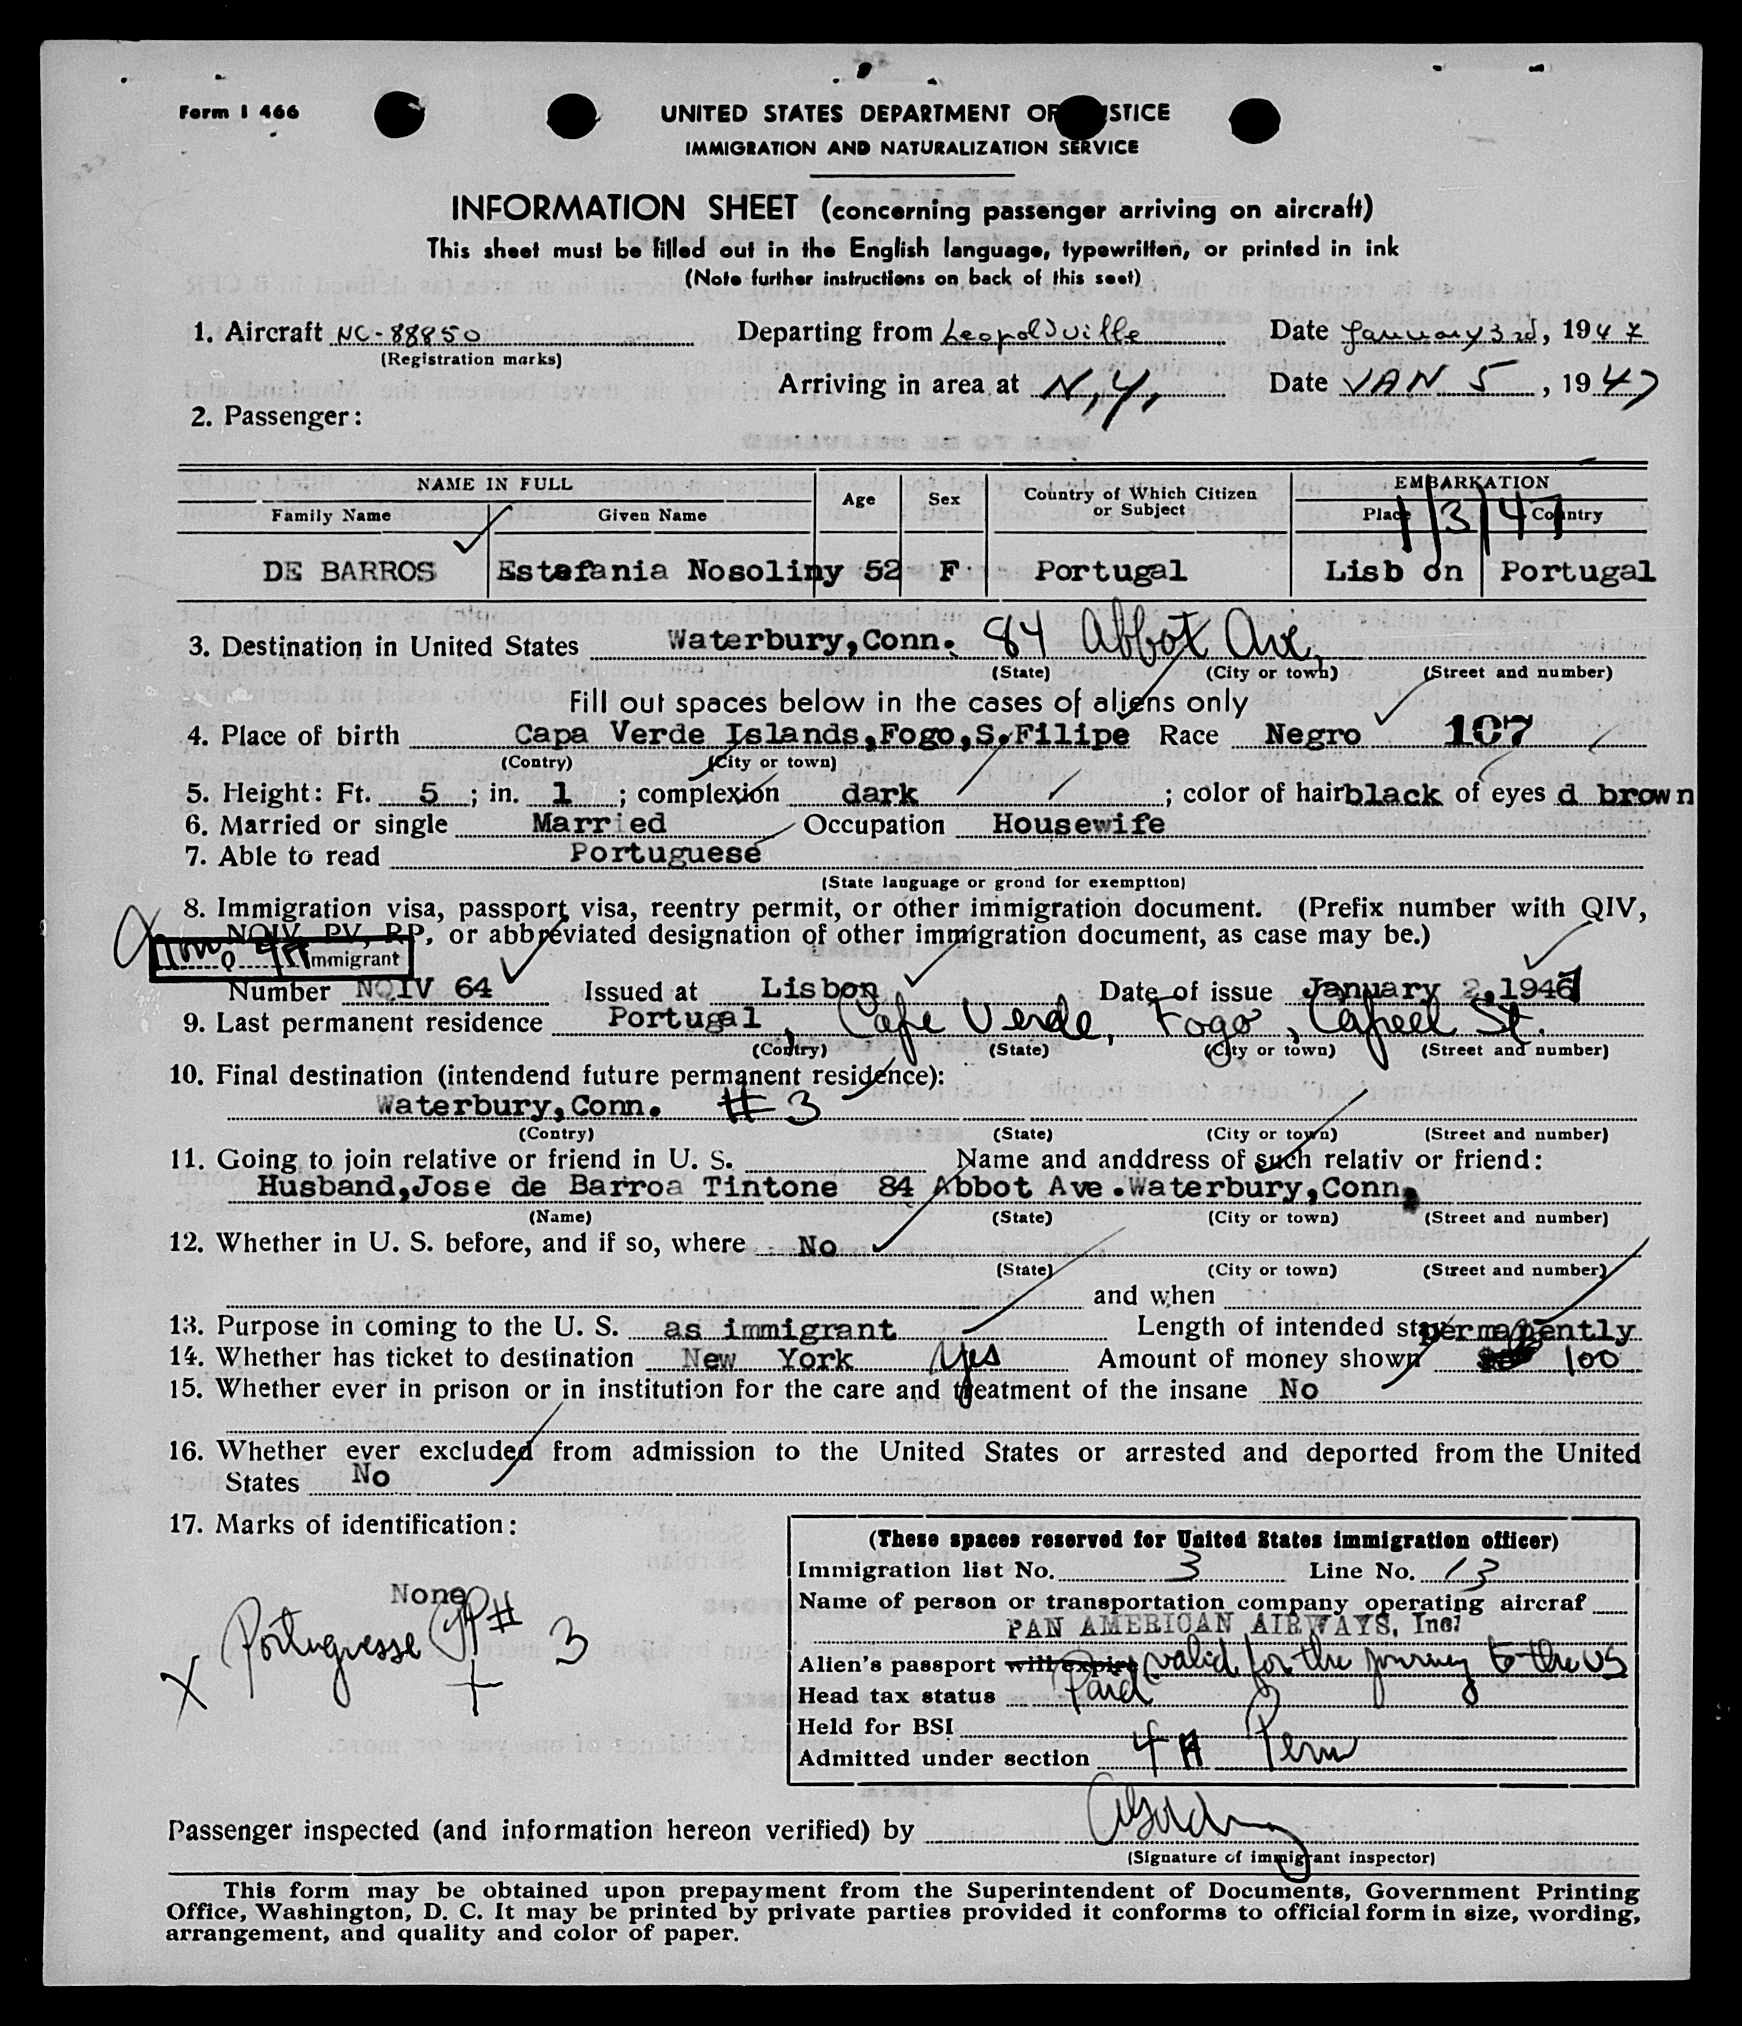 Form I 466
UNITED STATES DEPARTMENT OF STICE
IMMIGRATION AND NATURALIZATION SERVICE
INFORMATION SHEET (concerning passenger arriving on aircraft)
This sheet must be filled out in the English language, typewritten, or printed in ink
(Note further instructions on back of this seet)
1. Aircraft NC-88850 Departing from Leopoldville Date January 3rd, 1947
(Registration marks)
Arriving in area at N.Y. Date JAN 5, 1947
2. Passenger:
NAME IN FULL Age Sex Country of Which Citizen or Subject EMBARKATION
Family Name Given Name Place Country
1/3/47
DE BARROS Estefania Nosoliny 52 F Portugal Lisb on Portugal
3. Destination in United States Waterbury,Conn. 84 Abbot Ave.
(State) (City or town) (Street and number)
Fill out spaces below in the cases of aliens only
4. Place of birth Capa Verde Islands,Fogo,S.Filipe Race Negro 107
(Contry) (City or town)
5. Height: Ft. 5 ; in. 1 ; complexion dark ; color of hair black of eyes d brown
6. Married or single Married Occupation Housewife
7. Able to read Portuguese
(State language or grond for exemption)
8. Immigration visa, passport visa, reentry permit, or other immigration document. (Prefix number with QIV,
NQIV, PV, RP, or abbreviated designation of other immigration document, as case may be.)
Q mmigrant
Number NQIV 64 Issued at Lisbon Date of issue January 2,1947
9. Last permanent residence Portugal, Cape Verde, Fogo, St.
(Contry) (State) (City or town) (Street and number)
10. Final destination (intendend future permanent residence):
Waterbury,Conn. #3
(Contry) (State) (City or town) (Street and number)
11. Going to join relative or friend in U. S. Name and anddress of such relativ or friend:
Husband,Jose de Barroa Tintone 84 Abbot Ave.Waterbury,Conn.
(Name) (State) (City or town) (Street and number)
12. Whether in U. S. before, and if so, where No
(State) (City or town) (Street and number)
and when
13. Purpose in coming to the U. S. as immigrant Length of intended stay permanently
14. Whether has ticket to destination New York Yes Amount of money shown 100
15. Whether ever in prison or in institution for the care and treatment of the insane No
16. Whether ever excluded from admission to the United States or arrested and deported from the United
States No
17. Marks of identification:
None
Portuguesse PP# 3
X
(These spaces reserved for United States immigration officer)
Immigration list No. 3 Line No. 13
Name of person or transportation company operating aircraf
PAN AMERICAN AIRWAYS, Inc.
Alien's passport will expire valid for the journey to the US
Head tax status Paid
Held for BSI
Admitted under section 4A Perm
Passenger inspected (and information hereon verified) by
(Signature of immigrant inspector)
This form may be obtained upon prepayment from the Superintendent of Documents, Government Printing
Office, Washington, D. C. It may be printed by private parties provided it conforms to official form in size, wording,
arrangement, and quality and color of paper.